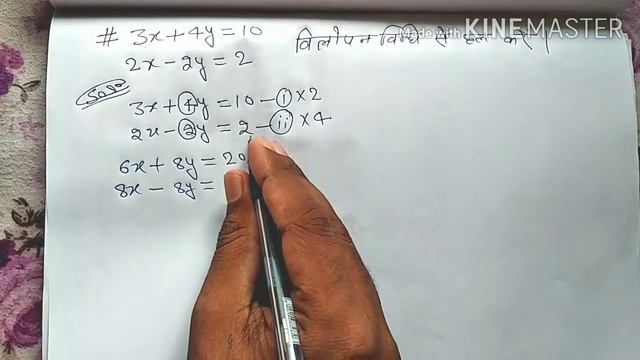 # 3x + 4y = 10 विलोपन विधि से हल करें।
Made with KINEMASTER
2x - 2y = 2
Solⁿ
3x + 4y = 10 - ⓘ × 2
2x - 2y = 2 - ⓘⓘ × 4
6x + 8y = 20
8x - 8y =